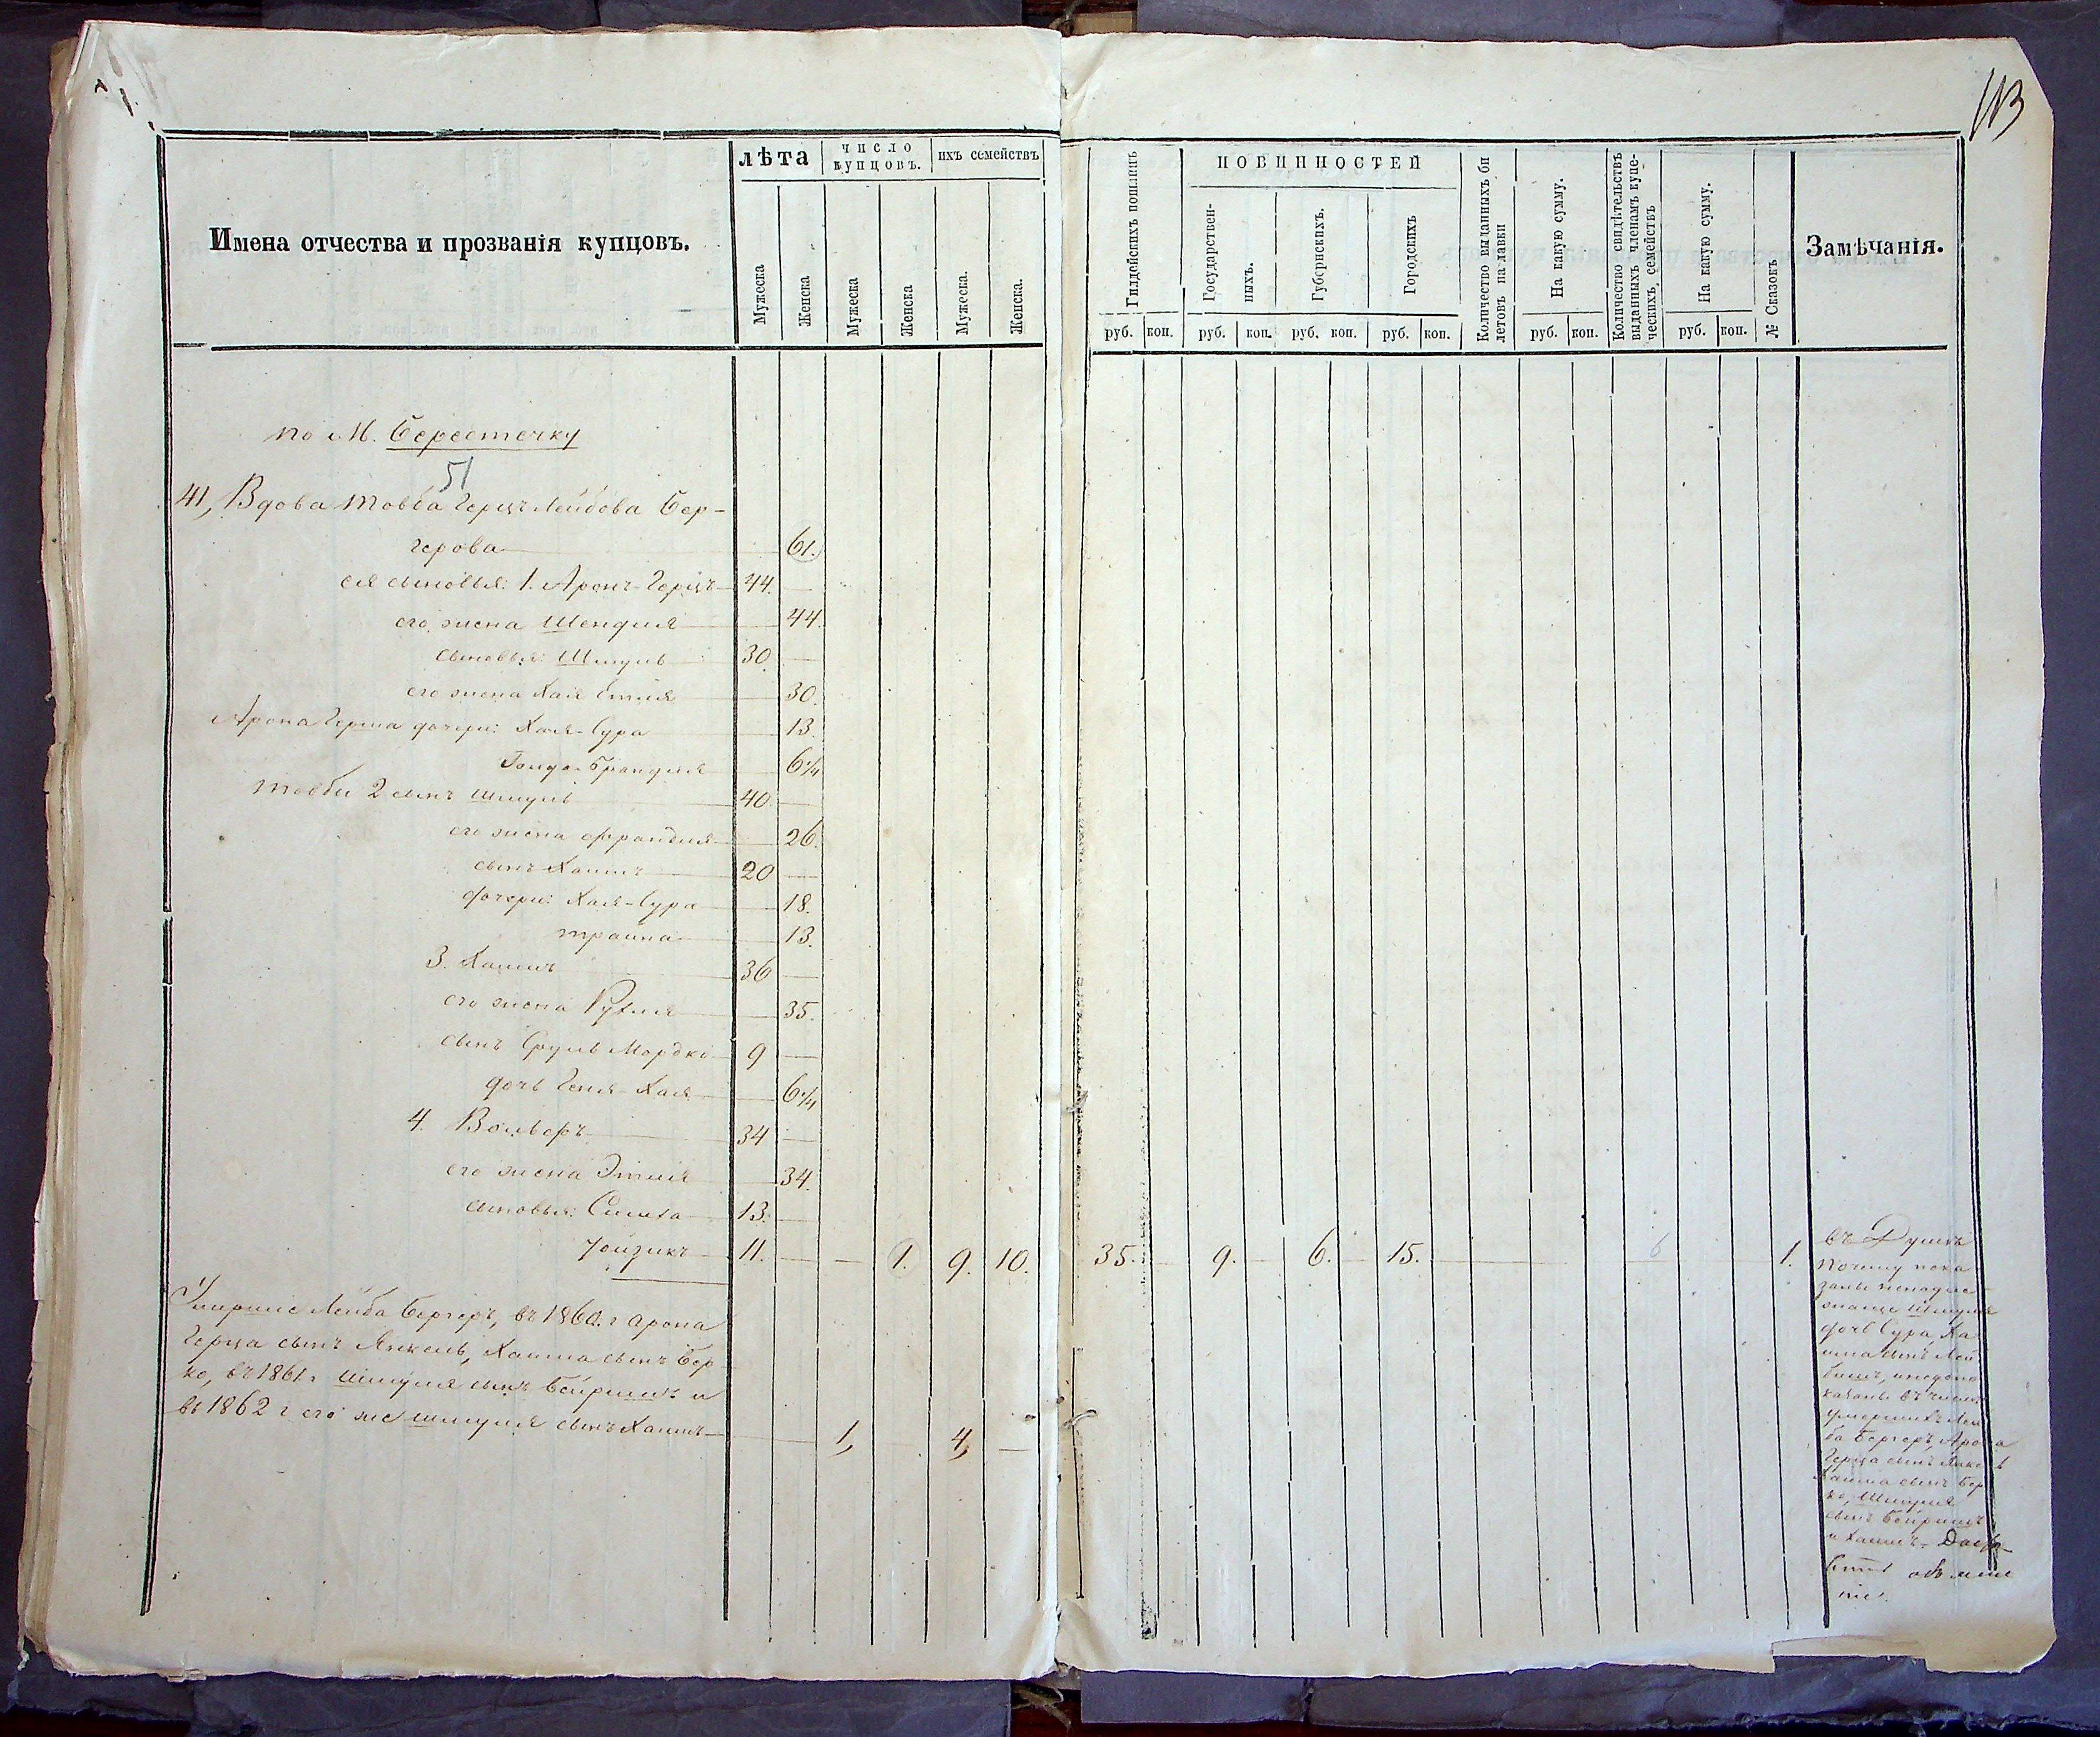 113
Имена отчества и прозванія купцовъ.
лѣта
Мужеска
Женска
число купцовъ.
Мужеска
Женска
ихъ семействъ
Мужеска.
Женска.
Гилдейскихъ пошлинъ
руб. коп.
ПОВИННОСТЕЙ
Государствен-
ныхъ.
руб. коп.
Губернскихъ.
руб. коп.
Городскихъ
руб. коп.
Количество выданныхъ би
летовъ на лавки
На какую сумму.
руб. коп.
Количество свидѣтельствъ
выданныхъ членамъ купе-
ческихъ семействъ
На какую сумму.
руб. коп.
№ Сказокъ
Замѣчанія.
по М. Берестечку
51
41, Вдова Товба Герцъ Лейбова Бер-
герова 61.
ея сыновья: 1. Аронъ-Герцъ 44.
его жена Шендля 44.
сыновья: Шмуль 30
его жена Хая Етля 30.
Арона Герша дочери: Хая-Сура 13.
Брандля 6 1/4
Товби 2 сынъ Шмуль 40
его жена Франдля 26.
сынъ Хаимъ 20
дочери: Хая-Сура 18.
Трайна 13.
3. Хаимъ 36
его жена Рухля 35.
сынъ Сруль Мордко 9
дочь Геня-Хая 6 1/4
4. Вольферъ 34
его жена Этля 34.
сыновья: Симха 13.
Зойзикъ 11. 1. 9. 10. 35. 9. 6. 15. 6 1.
Умершіе Лейба Бергеръ, въ 1860 г Арона
Герца сынъ Янкель, Хаима сынъ Бер
ко, въ 1861 г Шмуля сынъ Бейришъ и
въ 1862 г его же Шмуля сынъ Хаимъ 1, 4,
въ Думѣ
почему пока
заны
Шмуля
дочь Сура, Ха
има сынъ Лей
бишъ,
казаны въ числѣ
умершихъ Лей
ба Бергеръ, Арона
Герца сынъ Янкель
Хаима сынъ Бер
ко, Шмуля
сынъ Бейришъ
и Хаимъ.
объясне
ніе.